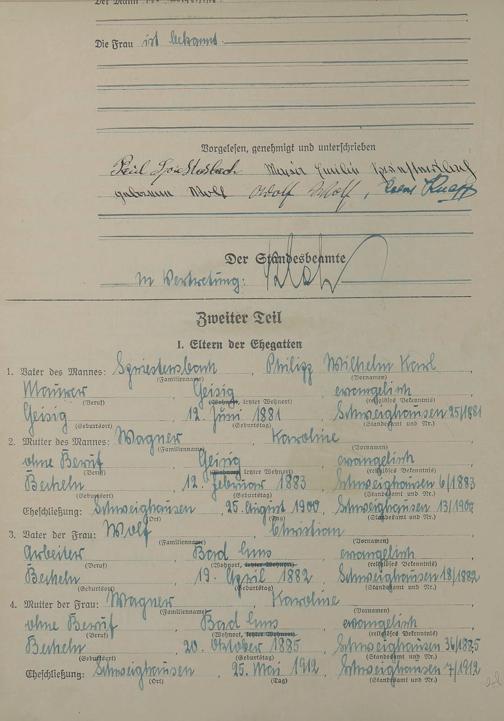 Die Frau ist bekannt.
Vorgelesen, genehmigt und unterschrieben
Maria Emilie
geborene Wolf Adolf Wolf,
Der Standesbeamte
In Vertretung:
Zweiter Teil
I. Eltern der Ehegatten
1. Vater des Mannes: Spriestersbach Philipp Wilhelm Karl
(Familienname) (Vornamen)
Maurer Geisig evangelisch
(Beruf) (Wohnort, letzter Wohnort) (religiöses Bekenntnis)
Geisig 12. Juni 1881 Schweighausen 25/1881
(Geburtsort) (Geburtstag) (Standesamt und Nr.)
2. Mutter des Mannes: Wagner Karoline
(Familienname) (Vornamen)
ohne Beruf Geisig evangelisch
(Beruf) (Wohnort, letzter Wohnort) (religiöses Bekenntnis)
Becheln 12. Februar 1883 Schweighausen 6/1883
(Geburtsort) (Geburtstag) (Standesamt und Nr.)
Eheschließung: Schweighausen 25. August 1900 Schweighausen 13/1900
(Ort) (Tag) (Standesamt und Nr.)
3. Vater der Frau: Wolf Christian
(Familienname) (Vornamen)
Arbeiter Bad Ems evangelisch
(Beruf) (Wohnort, letzter Wohnort) (religiöses Bekenntnis)
Becheln 19. April 1882 Schweighausen 18/1882
(Geburtsort) (Geburtstag) (Standesamt und Nr.)
4. Mutter der Frau: Wagner Karoline
(Familienname) (Vornamen)
ohne Beruf Bad Ems evangelisch
(Beruf) (Wohnort, letzter Wohnort) (religiöses Bekenntnis)
Becheln 20. Oktober 1885 Schweighausen 36/1885
(Geburtsort) (Geburtstag) (Standesamt und Nr.)
Eheschließung: Schweighausen 25. Mai 1912 Schweighausen 7/1912
(Ort) (Tag) (Standesamt und Nr.)